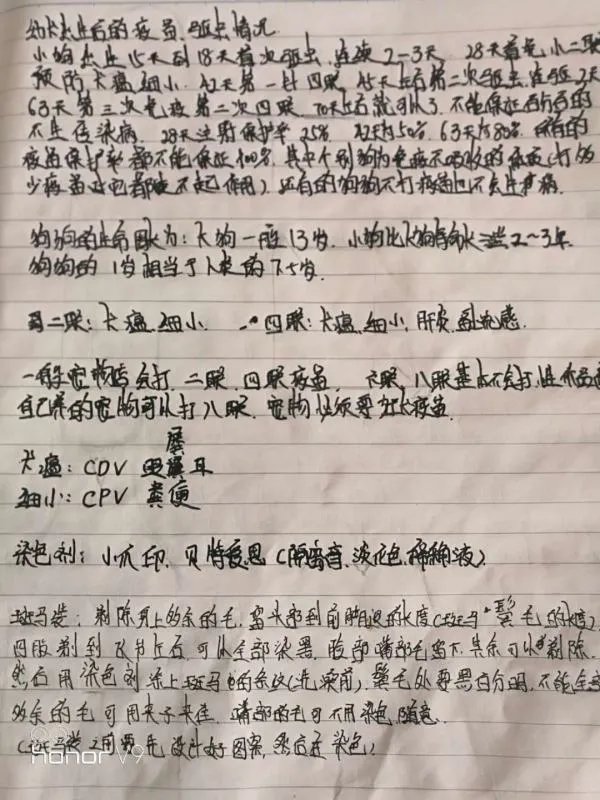 幼犬出生后的疫苗、驱虫情况
小狗出生15天到18天首次驱虫，连续2~3天，28天首免小二联
预防犬瘟细小，42天第一针四联，45天后第二次驱虫，连驱2天
63天第三次免疫第二次四联，70天后就可以了，不能保证所有的
不生传染病，28天注射保护率25%，42天为50%，63天为80%，所有的
疫苗保护率都不能保证100%，其中个别狗为免疫不吸收的体质（打多
少疫苗对它都起不起作用），还有的狗狗不打疫苗也不会生疾病。
狗狗的生命周期为：大狗一般13岁，小狗比大狗寿命长一些2~3年
狗狗的1岁相当于人类的7.5岁。
二联：犬瘟、细小 四联：犬瘟、细小，肝炎，副流感。
一般宠物店会打，二联、四联疫苗，六联、八联基本不会打，
自己养的宠物可以打八联，宠物必须要打狂犬疫苗
犬瘟：CDV 眼 屎 耳
细小：CPV 粪便
染色剂：小爪印、贝特爱思（隔离膏，淡化色，稀释液）
斑马装：剃除身上多余的毛，留头部到前脚的长度（斑马鬃毛的长度）
四肢剃到飞节上后，可以全部染黑，腹部嘴部毛留下，其余可以剃除，
然后用染色剂涂上斑马的条纹（先染前），鬃毛处要黑白分明，不能
多余的毛可用夹子夹住，嘴部的毛可不用染色，随意
（斑马装之前要先设计好图案，然后在染色）
honor V9